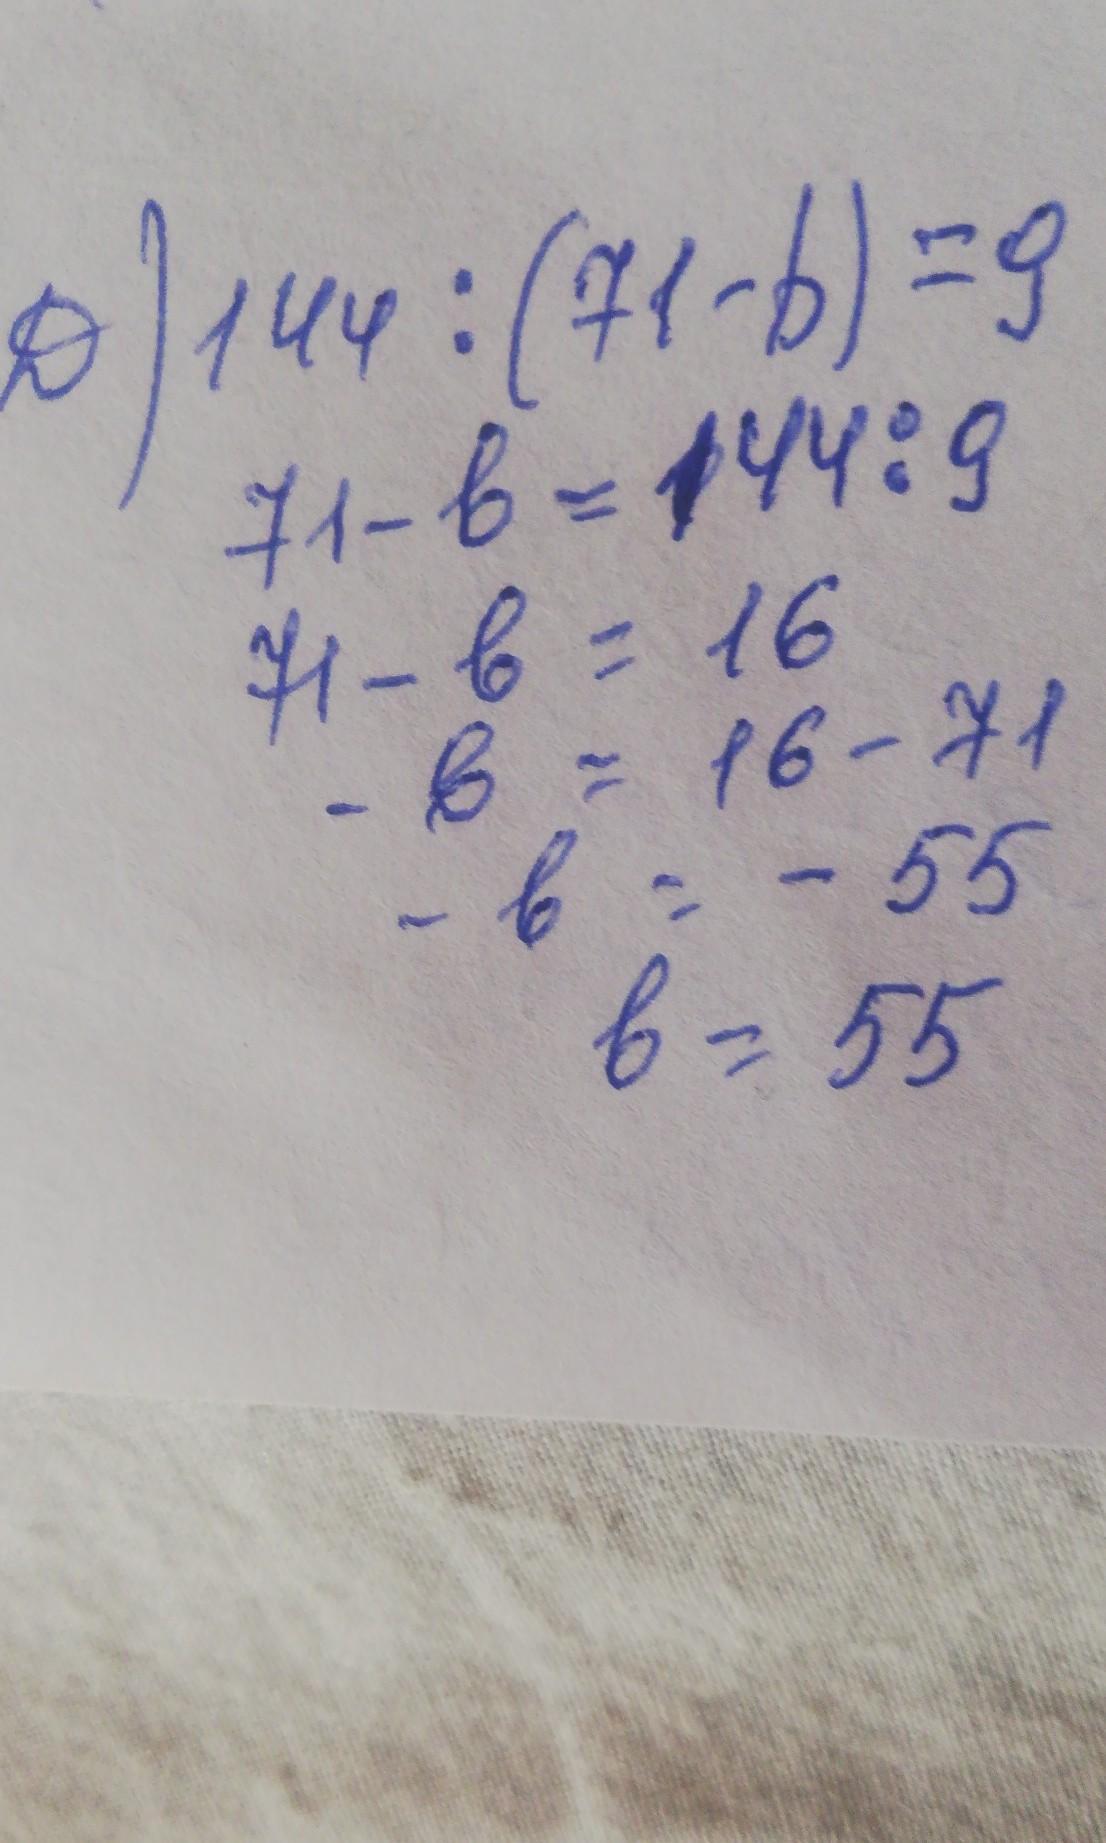 D) 144 : (71 - b) = 9
71 - b = 144 : 9
71 - b = 16
- b = 16 - 71
- b = - 55
b = 55